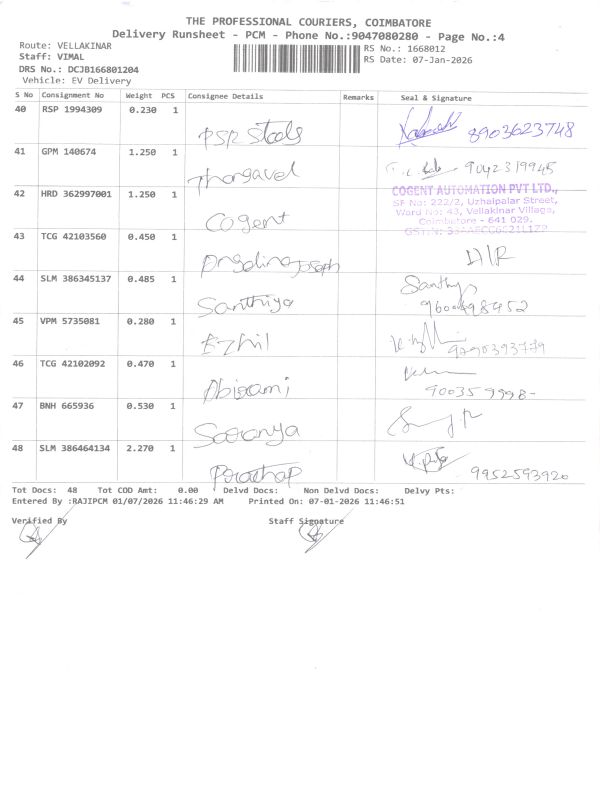 THE PROFESSIONAL COURIERS, COIMBATORE
Delivery Runsheet - PCM - Phone No.:9047080280 - Page No.:4
Route: VELLAKINAR
RS No.: 1668012
Staff: VIMAL
RS Date: 07-Jan-2026
DRS No.: DCJB166801204
Vehicle: EV Delivery
S No Consignment No Weight PCS Consignee Details Remarks Seal & Signature
40 RSP 1994309 0.230 1
PSR Steels 8903623748
41 GPM 140674 1.250 1
Thangavel 9042319945
42 HRD 362997001 1.250 1
Cogent
COGENT AUTOMATION PVT LTD.,
SF No: 222/2, Uzhaipalar Street,
Ward No: 43, Vellakinar Village,
Coimbatore - 641 029.
43 TCG 42103560 0.450 1
Joseph
44 SLM 386345137 0.485 1
Santhiya Santhiya
45 VPM 5735081 0.280 1
Ezhil 9790393779
46 TCG 42102092 0.470 1
Abirami
47 BNH 665936 0.530 1
Saranya
48 SLM 386464134 2.270 1
9952593920
Tot Docs: 48 Tot COD Amt: 0.00 Delvd Docs: Non Delvd Docs: Delvy Pts:
Entered By :RAJIPCM 01/07/2026 11:46:29 AM Printed On: 07-01-2026 11:46:51
Verified By Staff Signature